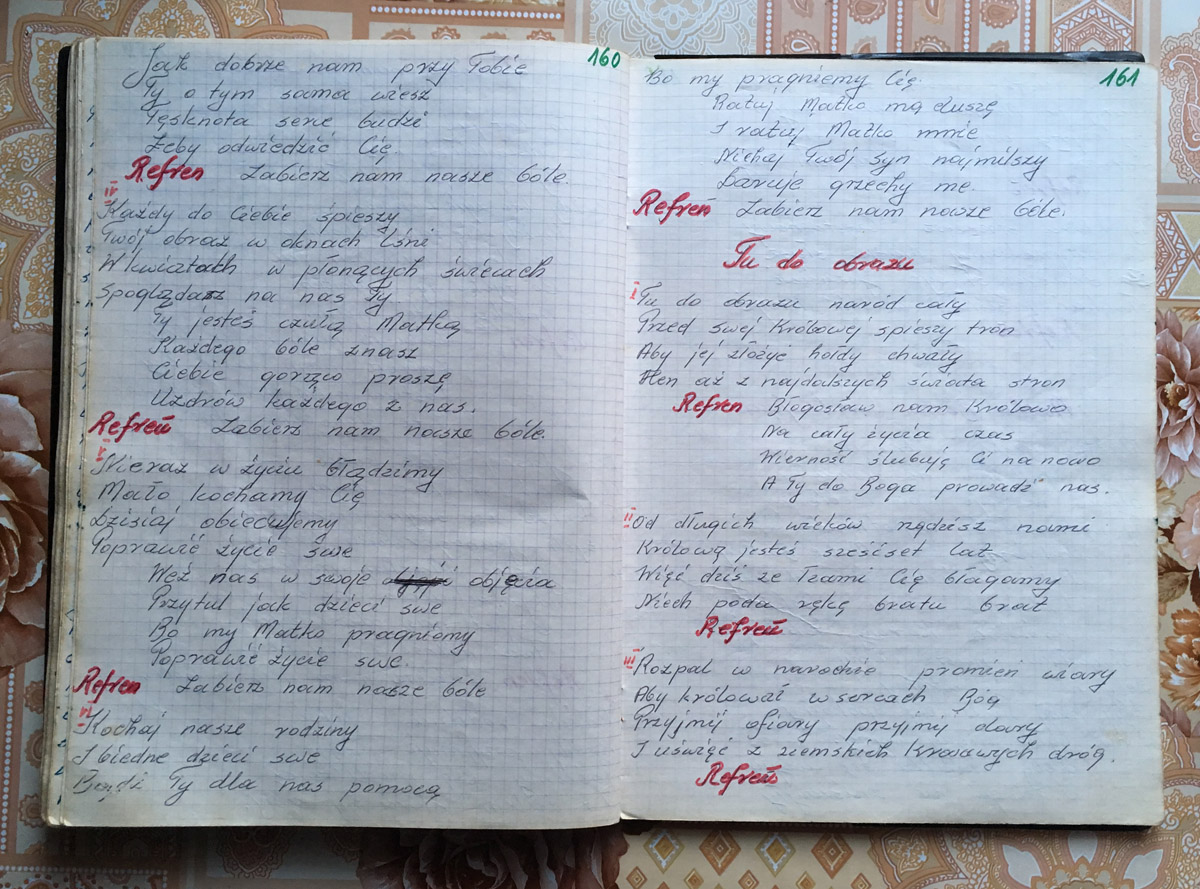 160
Jak dobrze nam przy Tobie
Ty o tym sama wiesz
Tęsknota serce budzi
Żeby odwiedzić Cię.
Refren Zabierz nam nasze bóle.
IV
Każdy do Ciebie śpieszy
Twój obraz w oknach lśni
W kwiatach w płonących świecach
Spoglądasz na nas Ty
Ty jesteś czułą Matką
Każdego bóle znasz
Ciebie gorąco proszę
Uzdrów każdego z nas.
Refreń Zabierz nam nasze bóle.
V
Nieraz w życiu błądzimy
Mało kochamy Cię
Dzisiaj obiecujemy
Poprawić życie swe
Weź nas w swoje objęcia
Przytul jak dzieci swe
Bo my Matko pragniemy
Poprawić życie swe.
Refren Zabierz nam nasze bóle
VI
Kochaj nasze rodziny
I biedne dzieci swe
Bądź Ty dla nas pomocą
161
Bo my pragniemy Cię.
Ratuj Matko mą duszę
I ratuj Matko mnie
Niechaj Twój Syn najmilszy
Daruje grzechy me.
Refreń Zabierz nam nasze bóle.
Tu do obrazu
I
Tu do obrazu naród cały
Przed swej Królowej spieszy tron
Aby jej złożyć hołdy chwały
Hen aż z najdalszych świata stron
Refren Błogosław nam Królowo
Na cały życia czas
Wierność ślubują Ci na nowo
A Ty do Boga prowadź nas.
II
Od długich wieków rządzisz nami
Królową jesteś sześćset lat
Więc dziś ze łzami Cię błagamy
Niech poda rękę bratu brat
Refreń
III
Rozpal w narodzie promień wiary
Aby królował w sercach Bóg
Przyjmij ofiary przyjmij dary
I uświęć z ziemskich krwawych dróg.
Refreń